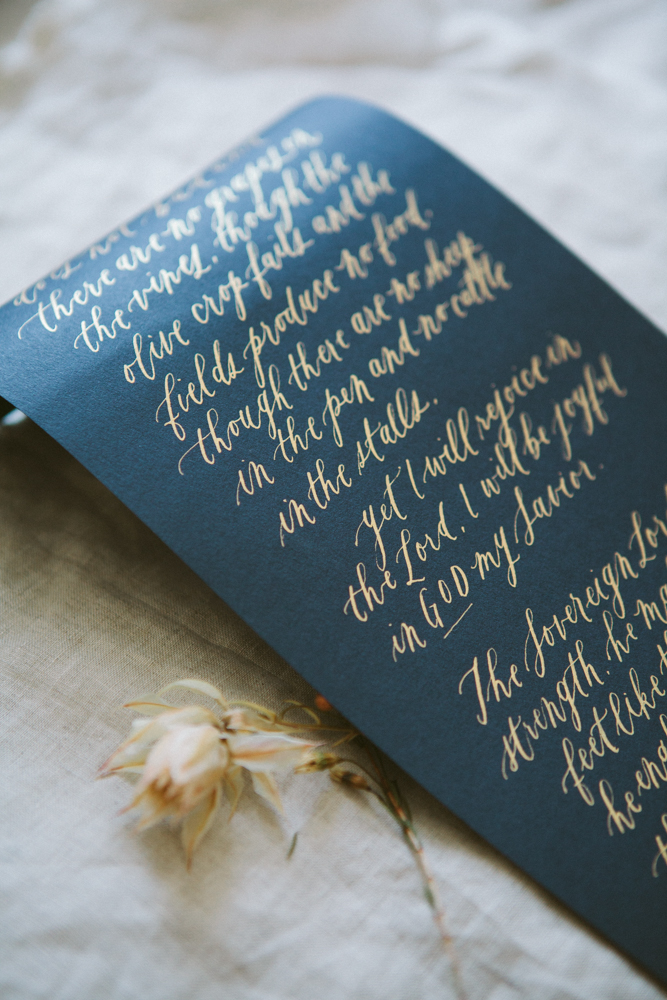 does not
there are no grapes on
the vines, though the
olive crop fails and the
fields produce no food.
though there are no sheep
in the pen and no cattle
in the stalls.
yet I will rejoice in
the Lord, I will be joyful
in GOD my Savior.
The Sovereign
strength. he
feet like
he